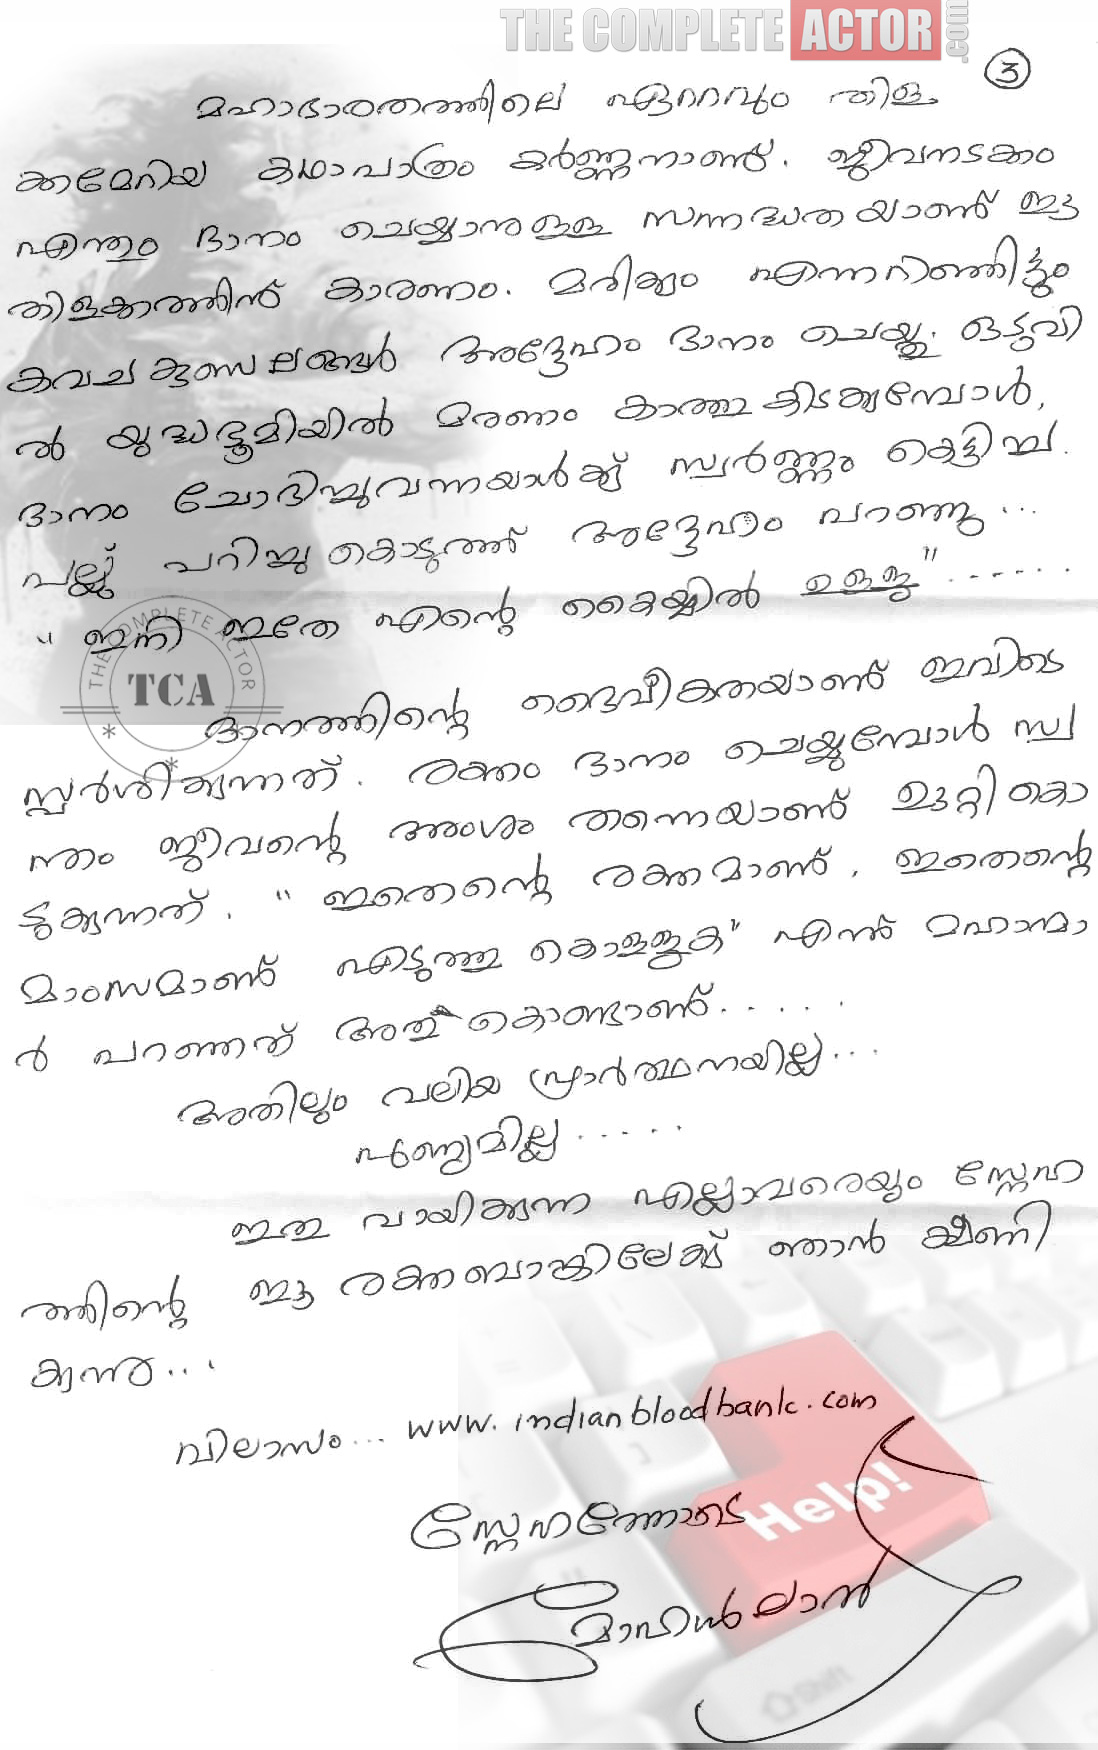 THE COMPLETE ACTOR .com
3
മഹാഭാരതത്തിലെ ഏററവും തിള
ക്കമേറിയ കഥാപാത്രം കർണ്ണനാണ്. ജീവനടക്കം
എന്തും ദാനം ചെയ്യാനുള്ള സന്നദ്ധതയാണ് ഈ
തിളക്കത്തിന് കാരണം. മരിക്കും എന്നറിഞ്ഞിട്ടും
കവചകുണ്ഡലങ്ങൾ അദ്ദേഹം ദാനം ചെയ്തു. ഒടുവി
ൽ യുദ്ധഭൂമിയിൽ മരണം കാത്തു കിടക്കുമ്പോൾ,
ദാനം ചോദിച്ചുവന്നയാൾക്ക് സ്വർണ്ണം കെട്ടിച്ച.
പല്ല് പറിച്ചു കൊടുത്ത് അദ്ദേഹം പറഞ്ഞു...
" ഇനി ഇതേ എന്റെ കൈയ്യിൽ ഉള്ളൂ"......
THE COMPLETE ACTOR
TCA
ദാനത്തിന്റെ ദൈവീകതയാണ് ഇവിടെ
സ്പർശിക്കുന്നത്. രക്തം ദാനം ചെയ്യുമ്പോൾ സ്വ
ന്തം ജീവന്റെ അംശം തന്നെയാണ് ഊറ്റികൊ
ടുക്കുന്നത്. " ഇതെന്റെ രക്തമാണ്, ഇതെന്റെ
മാംസമാണ് എടുത്തു കൊള്ളുക" എന്ന് മഹാന്മാ
ർ പറഞ്ഞത് അത് കൊണ്ടാണ്.....
അതിലും വലിയ പ്രാർത്ഥനയില്ല...
പുണ്യമില്ല.....
ഇതു വായിക്കുന്ന എല്ലാവരെയും സ്നേഹ
ത്തിന്റെ ഈ രക്തബാങ്കിലേക്ക് ഞാൻ ക്ഷണി
ക്കുന്നു...
വിലാസം... www.indianbloodbank.com
സ്നേഹത്തോടെ
മോഹൻലാൽ
Help!
Shift